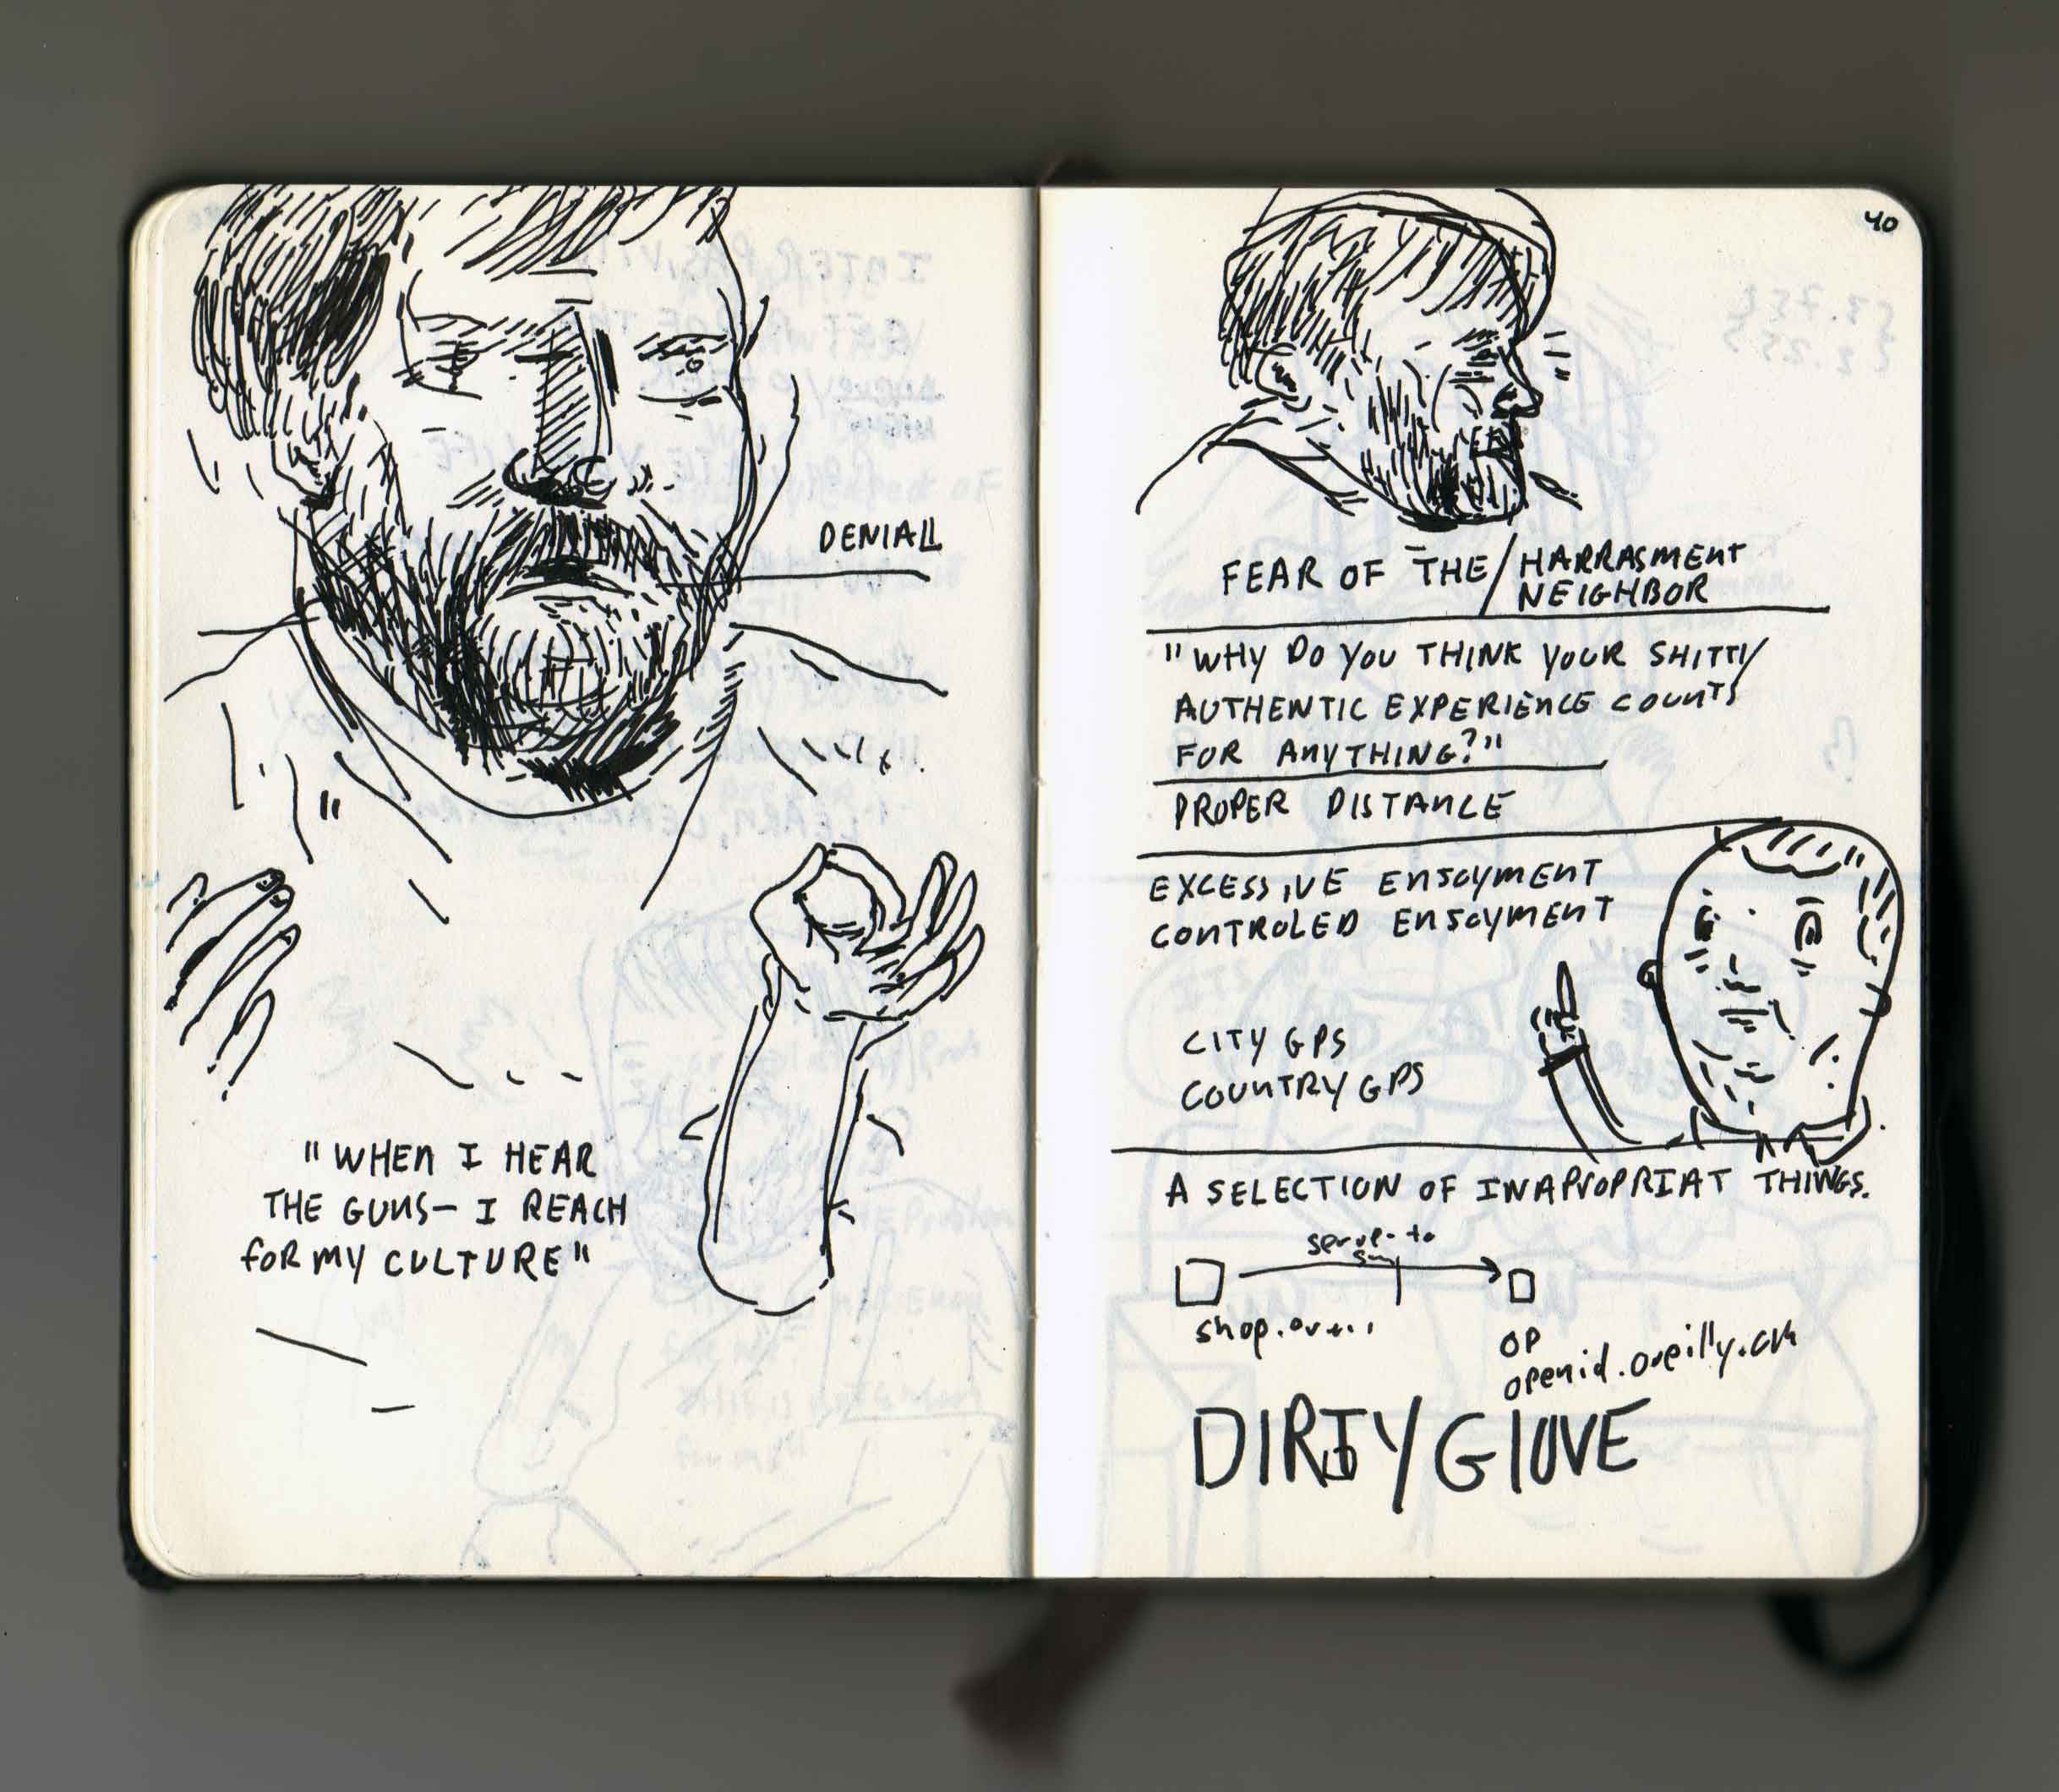 DENIALL
"WHEN I HEAR
THE GUNS— I REACH
FOR MY CULTURE"
40
FEAR OF THE / HARRASMENT
NEIGHBOR
"WHY DO YOU THINK YOUR SHITTY
AUTHENTIC EXPERIENCE COUNTS
FOR ANYTHING?"
PROPER DISTANCE
EXCESSIVE ENJOYMENT
CONTROLED ENJOYMENT
CITY GPS
COUNTRY GPS
A SELECTION OF INAPROPRIAT THINGS.
OP
openid.oreilly.com
DIRTY GLOVE